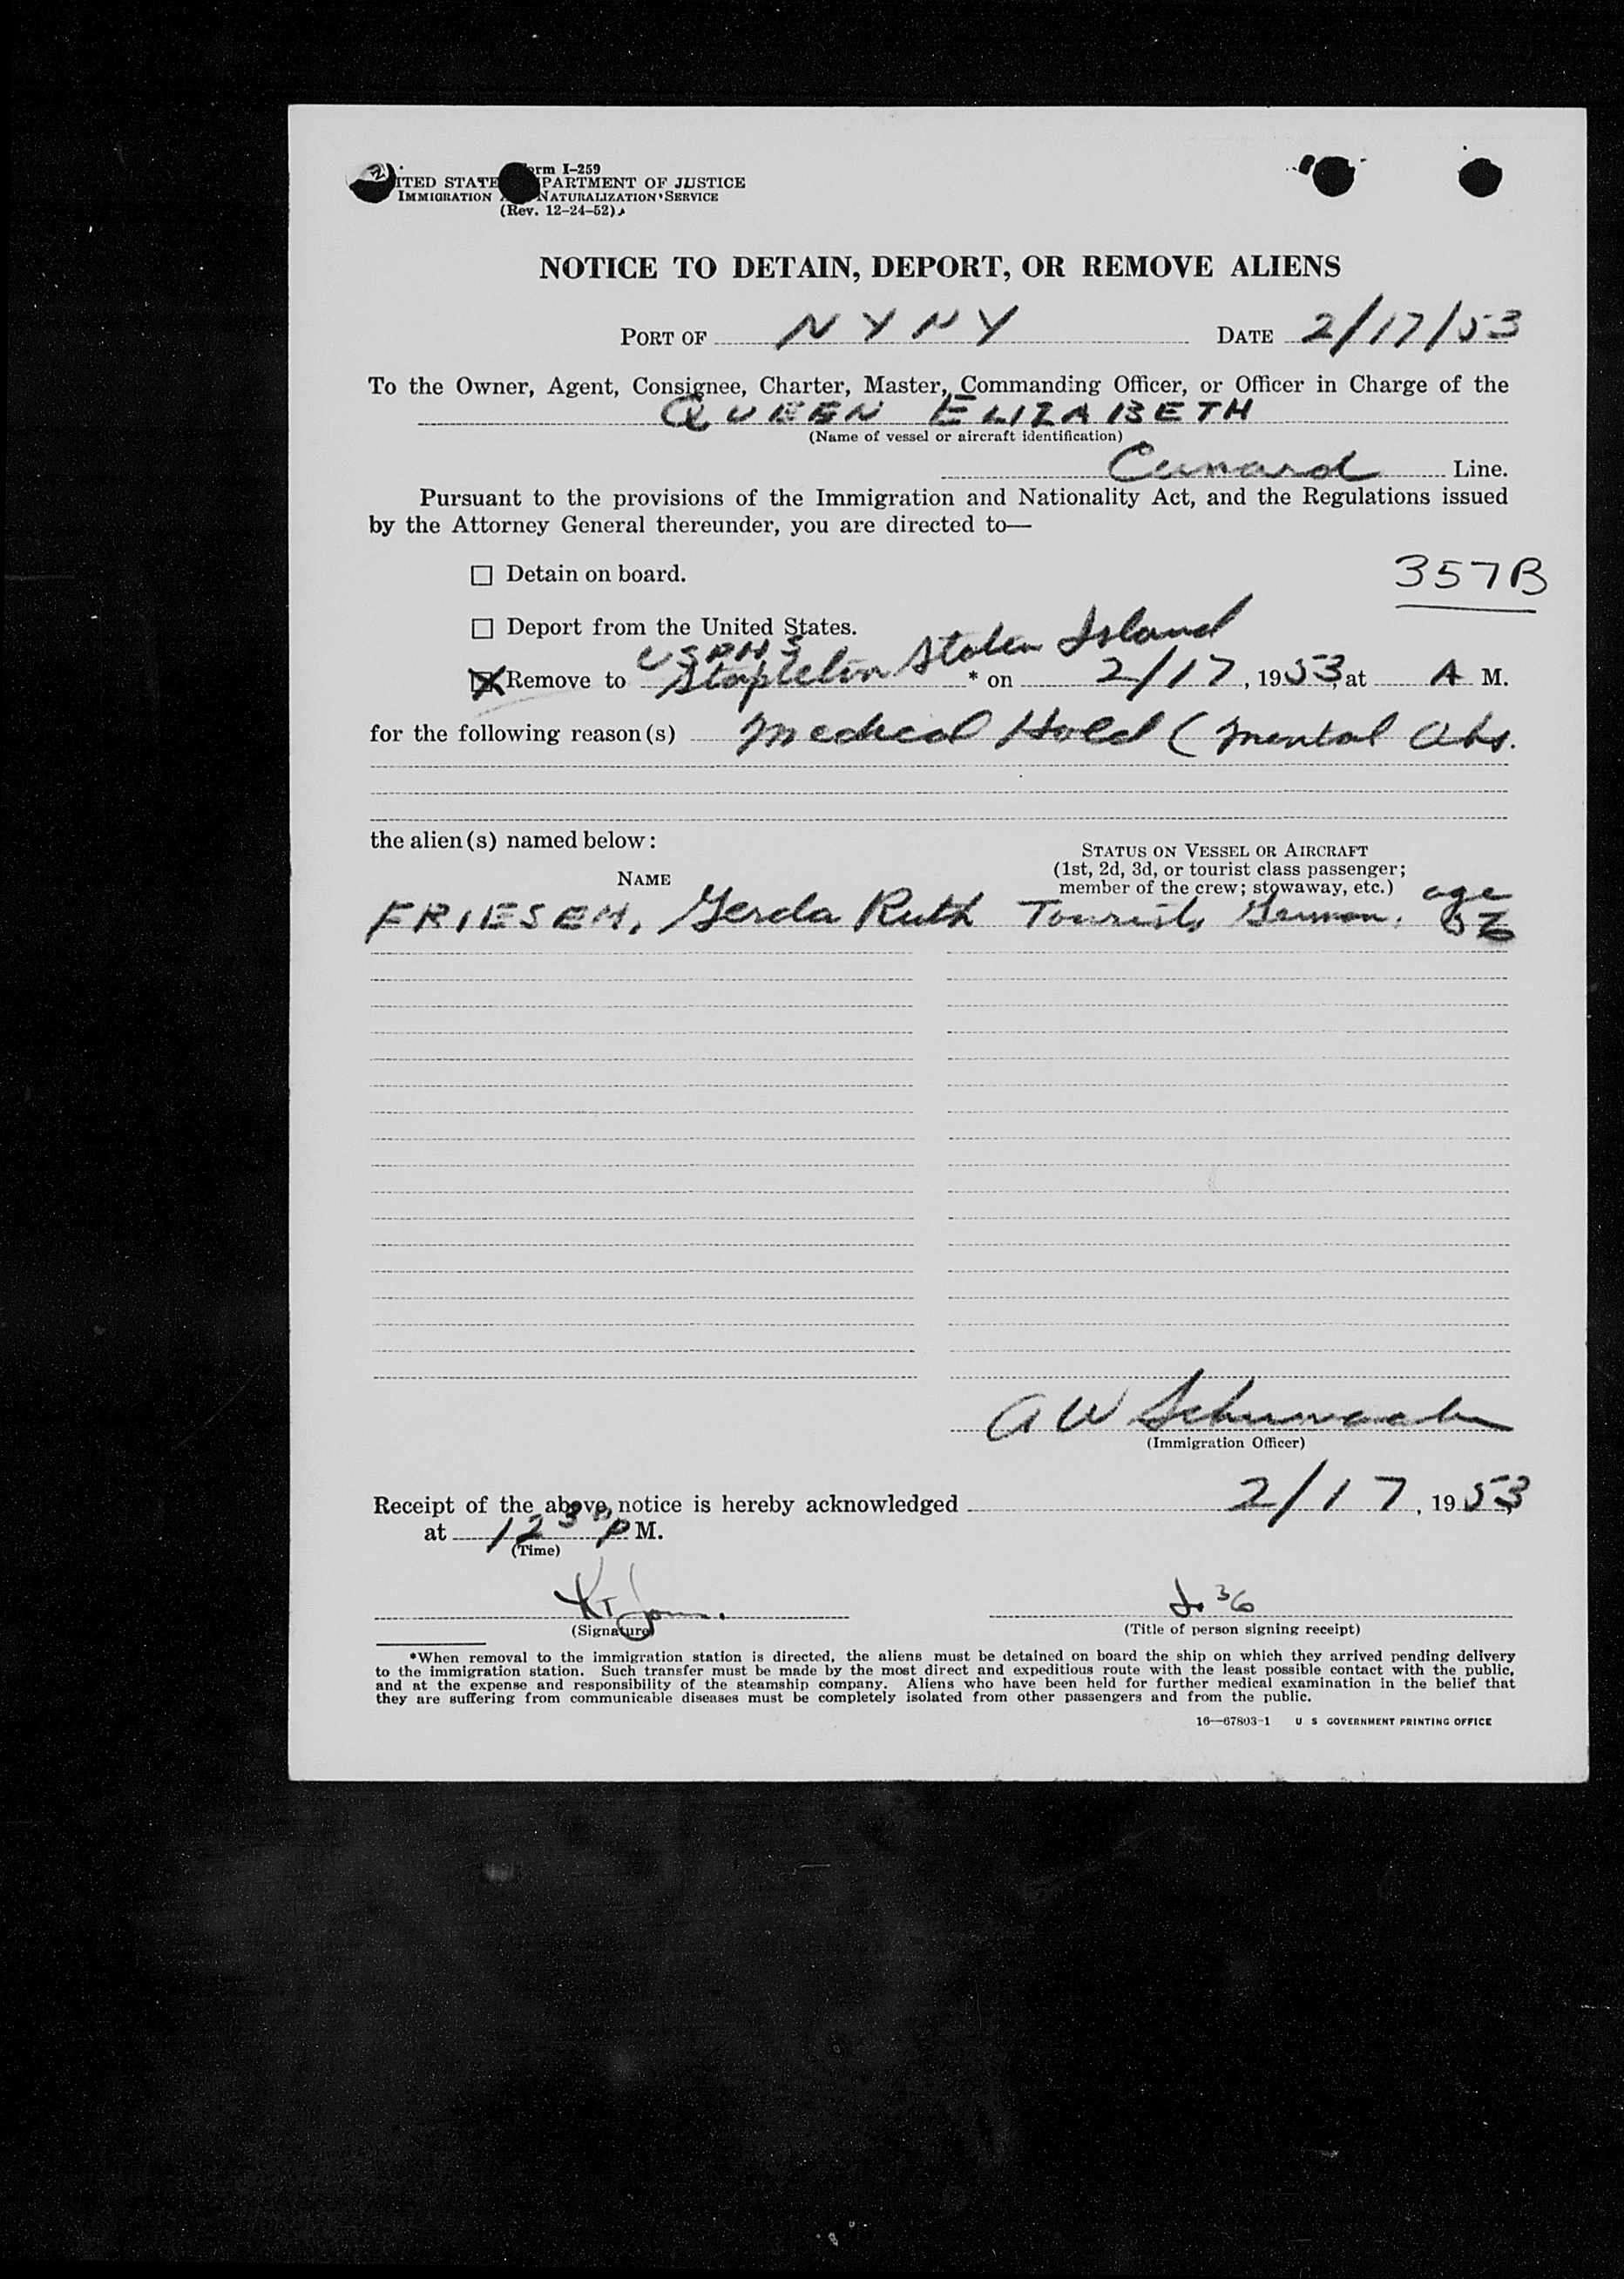 Form I-259
UNITED STATES DEPARTMENT OF JUSTICE
IMMIGRATION AND NATURALIZATION SERVICE
(Rev. 12-24-52)
NOTICE TO DETAIN, DEPORT, OR REMOVE ALIENS
PORT OF N Y N Y DATE 2/17/53
To the Owner, Agent, Consignee, Charter, Master, Commanding Officer, or Officer in Charge of the
QUEEN ELIZABETH
(Name of vessel or aircraft identification)
Cunard Line.
Pursuant to the provisions of the Immigration and Nationality Act, and the Regulations issued
by the Attorney General thereunder, you are directed to—
☐ Detain on board.
357B
☐ Deport from the United States.
USPHS
☒ Remove to Stapleton Staten Island * on 2/17, 1953, at A M.
for the following reason(s) Medical Hold (Mental Obs.
the alien(s) named below:
NAME
STATUS ON VESSEL OR AIRCRAFT
(1st, 2d, 3d, or tourist class passenger;
member of the crew; stowaway, etc.)
FRIESEM, Gerda Ruth Tourist, German, age
A W
(Immigration Officer)
Receipt of the above notice is hereby acknowledged 2/17, 1953
at 12 30 P M.
(Time)
(Signature)
(Title of person signing receipt)
*When removal to the immigration station is directed, the aliens must be detained on board the ship on which they arrived pending delivery
to the immigration station. Such transfer must be made by the most direct and expeditious route with the least possible contact with the public,
and at the expense and responsibility of the steamship company. Aliens who have been held for further medical examination in the belief that
they are suffering from communicable diseases must be completely isolated from other passengers and from the public.
16—67803-1 U S GOVERNMENT PRINTING OFFICE